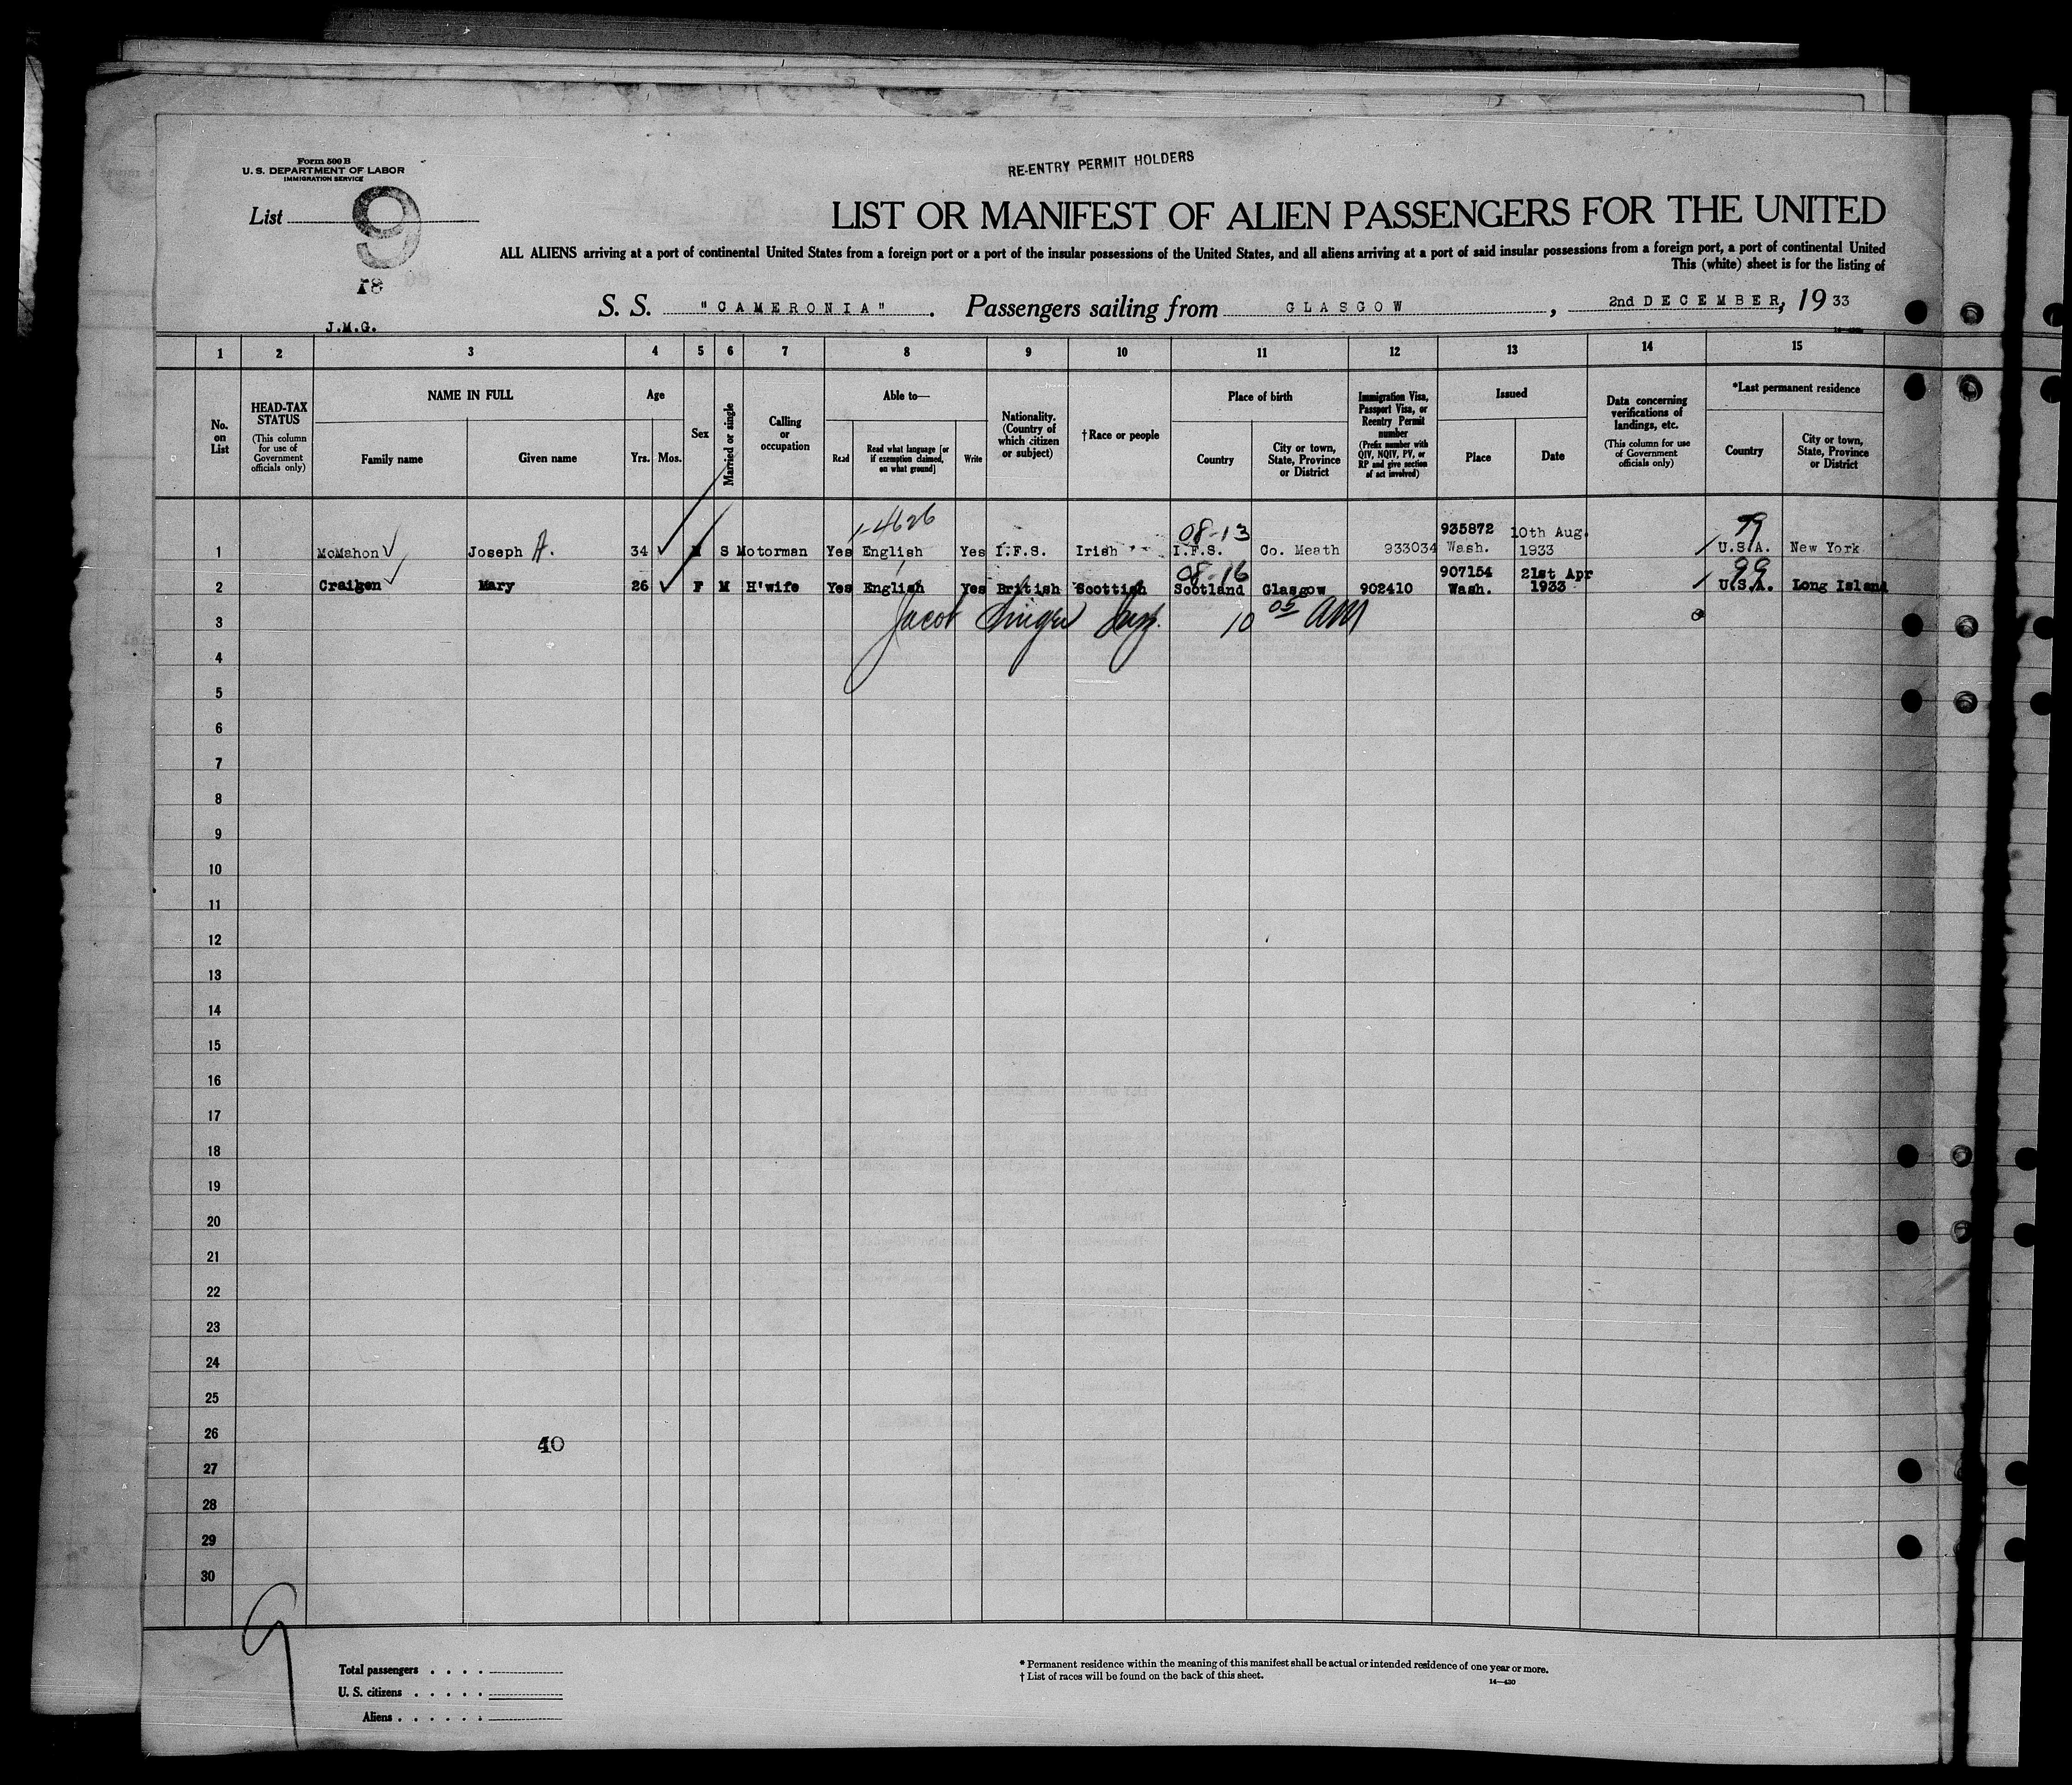 Form 500 B
U. S. DEPARTMENT OF LABOR
IMMIGRATION SERVICE
RE-ENTRY PERMIT HOLDERS
List 9
18
J.M.G.
LIST OR MANIFEST OF ALIEN PASSENGERS FOR THE UNITED
ALL ALIENS arriving at a port of continental United States from a foreign port or a port of the insular possessions of the United States, and all aliens arriving at a port of said insular possessions from a foreign port, a port of continental United
This (white) sheet is for the listing of
S. S. "CAMERONIA". Passengers sailing from GLASGOW, 2nd DECEMBER, 19 33
1 2 3 4 5 6 7 8 9 10 11 12 13 14 15
No. on List
HEAD-TAX STATUS
(This column for use of Government officials only)
NAME IN FULL
Family name
Given name
Age
Yrs. Mos.
Sex
Married or single
Calling or occupation
Able to—
Read
Read what language [or if exemption claimed, on what ground]
Write
Nationality. (Country of which citizen or subject)
†Race or people
Place of birth
Country
City or town, State, Province or District
Immigration Visa, Passport Visa, or Reentry Permit number
(Prefix number with QIV, NQIV, PV, or RP and give section of act involved)
Issued
Place
Date
Data concerning verifications of landings, etc.
(This column for use of Government officials only)
*Last permanent residence
Country
City or town, State, Province or District
1-4626 08-13 935872 10th Aug. 99
1 McMahon Joseph A. 34 M S Motorman Yes English Yes I.F.S. Irish I.F.S. Co. Meath 933034 Wash. 1933 U.S.A. New York
08-16 907154 21st Apr 99
2 Craigen Mary 26 F M H'wife Yes English Yes British Scottish Scotland Glasgow 902410 Wash. 1933 U.S.A. Long Island
3 Jacob Singer Insp. 10 05 AM
4
5
6
7
8
9
10
11
12
13
14
15
16
17
18
19
20
21
22
23
24
25
26
40
27
28
29
30
9
Total passengers
U. S. citizens
Aliens
* Permanent residence within the meaning of this manifest shall be actual or intended residence of one year or more.
† List of races will be found on the back of this sheet.
14—430